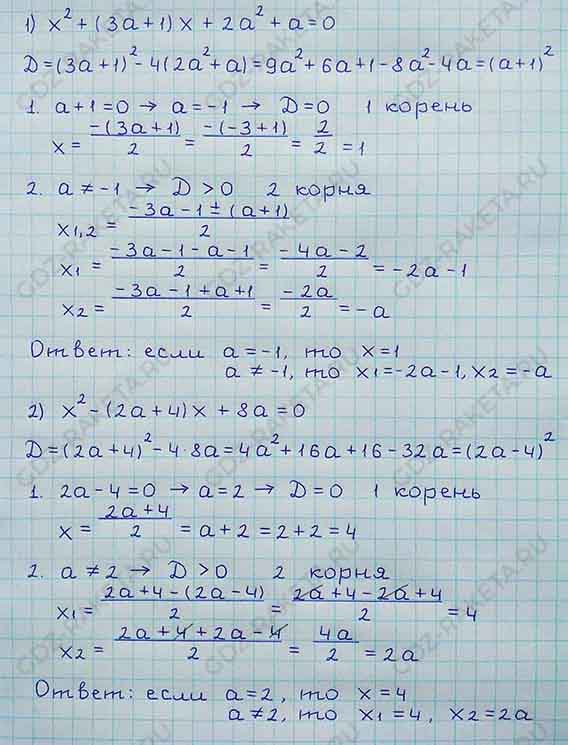 1) x² + (3a+1)x + 2a² + a = 0
D = (3a+1)² - 4(2a²+a) = 9a² + 6a + 1 - 8a² - 4a = (a+1)²
1. a+1=0 → a=-1 → D=0 1 корень
x = -(3a+1)/2 = -(-3+1)/2 = 2/2 = 1
2. a ≠ -1 → D > 0 2 корня
x1,2 = -3a-1±(a+1)/2
x1 = -3a-1-a-1/2 = -4a-2/2 = -2a-1
x2 = -3a-1+a+1/2 = -2a/2 = -a
Ответ: если a=-1, то x=1
a ≠ -1, то x1=-2a-1, x2=-a
2) x² - (2a+4)x + 8a = 0
D = (2a+4)² - 4·8a = 4a² + 16a + 16 - 32a = (2a-4)²
1. 2a-4=0 → a=2 → D=0 1 корень
x = 2a+4/2 = a+2 = 2+2 = 4
2. a ≠ 2 → D > 0 2 корня
x1 = 2a+4-(2a-4)/2 = 2a+4-2a+4/2 = 4
x2 = 2a+4+2a-4/2 = 4a/2 = 2a
Ответ: если a=2, то x=4
a ≠ 2, то x1=4, x2=2a
GDZ-RAKETA.RU